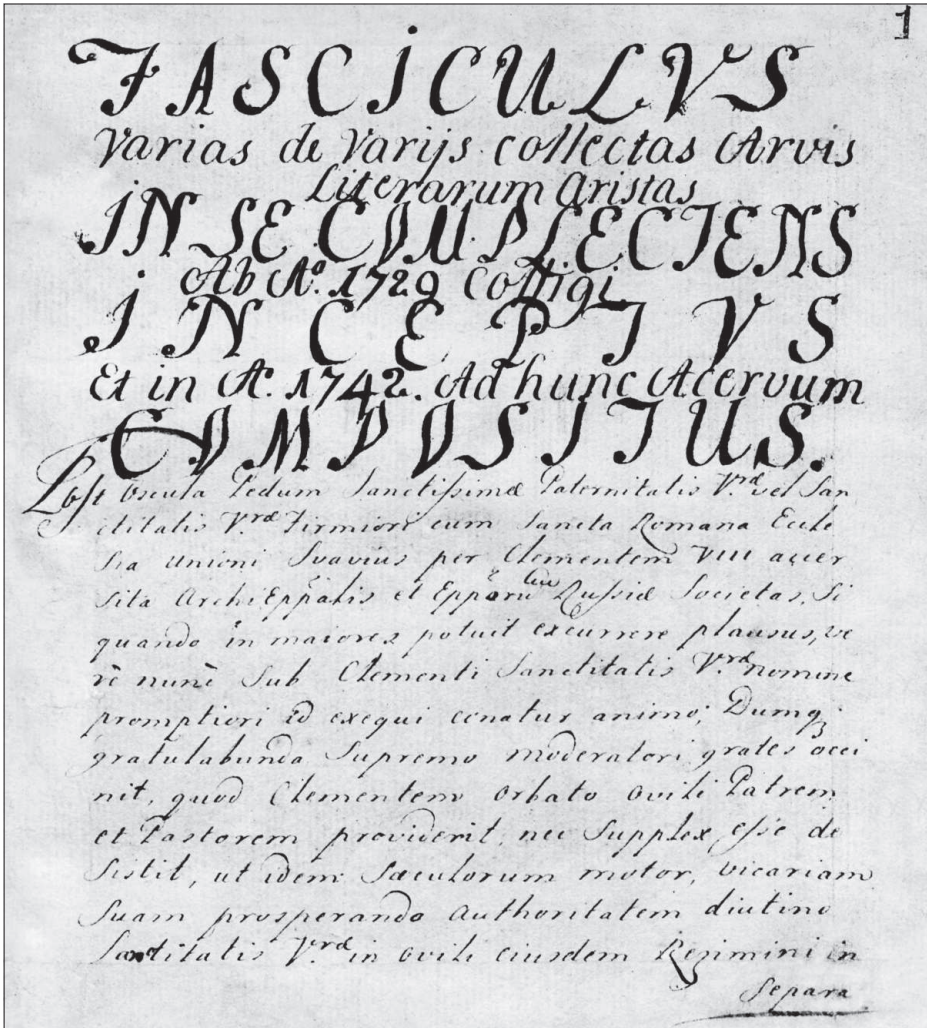 1
FASCICULVS
Varias de Varijs collectas Arvis
Literarum Aristas
IN SE COMPLECTENS
Ab Aº. 1729 Colligi
INCEPTVS
Et in Aº. 1742. Ad hunc Acervum
COMPOSITUS.
Post oscula Pedum Sanctissimæ Paternitatis Vræ vel San
ctitatis Vræ Firmiori cum Sancta Romana Eccle
sia unioni Svavius per Clementem VIII accer
sita ArchiEppalis et Epporum Russiæ Societas, Si
quando in maiores potuit excurrere plausus, ve
rè nunc Sub Clementi Sanctitatis Vræ nomine
promptiori id exequi conatur animo; Dumq;
gratulabunda Supremo moderatori grates occi
nit, quod Clementem orbato ovili Patrem
et Pastorem providerit, nec Supplex esse de
Sistit, ut idem Sæculorum motor, vicariam
Suam prosperando Authoritatem diutino
Sanctitatis Vræ in ovili eiusdem Regimini in
Separa